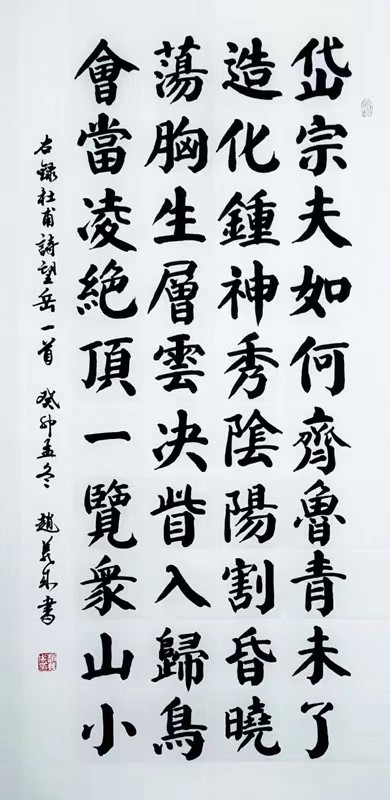 岱宗夫如何齊魯青未了
造化鍾神秀陰陽割昏曉
蕩胸生層雲决眥入歸鳥
會當凌絶頂一覽衆山小
右録杜甫詩望岳一首 癸卯孟冬 趙美成書